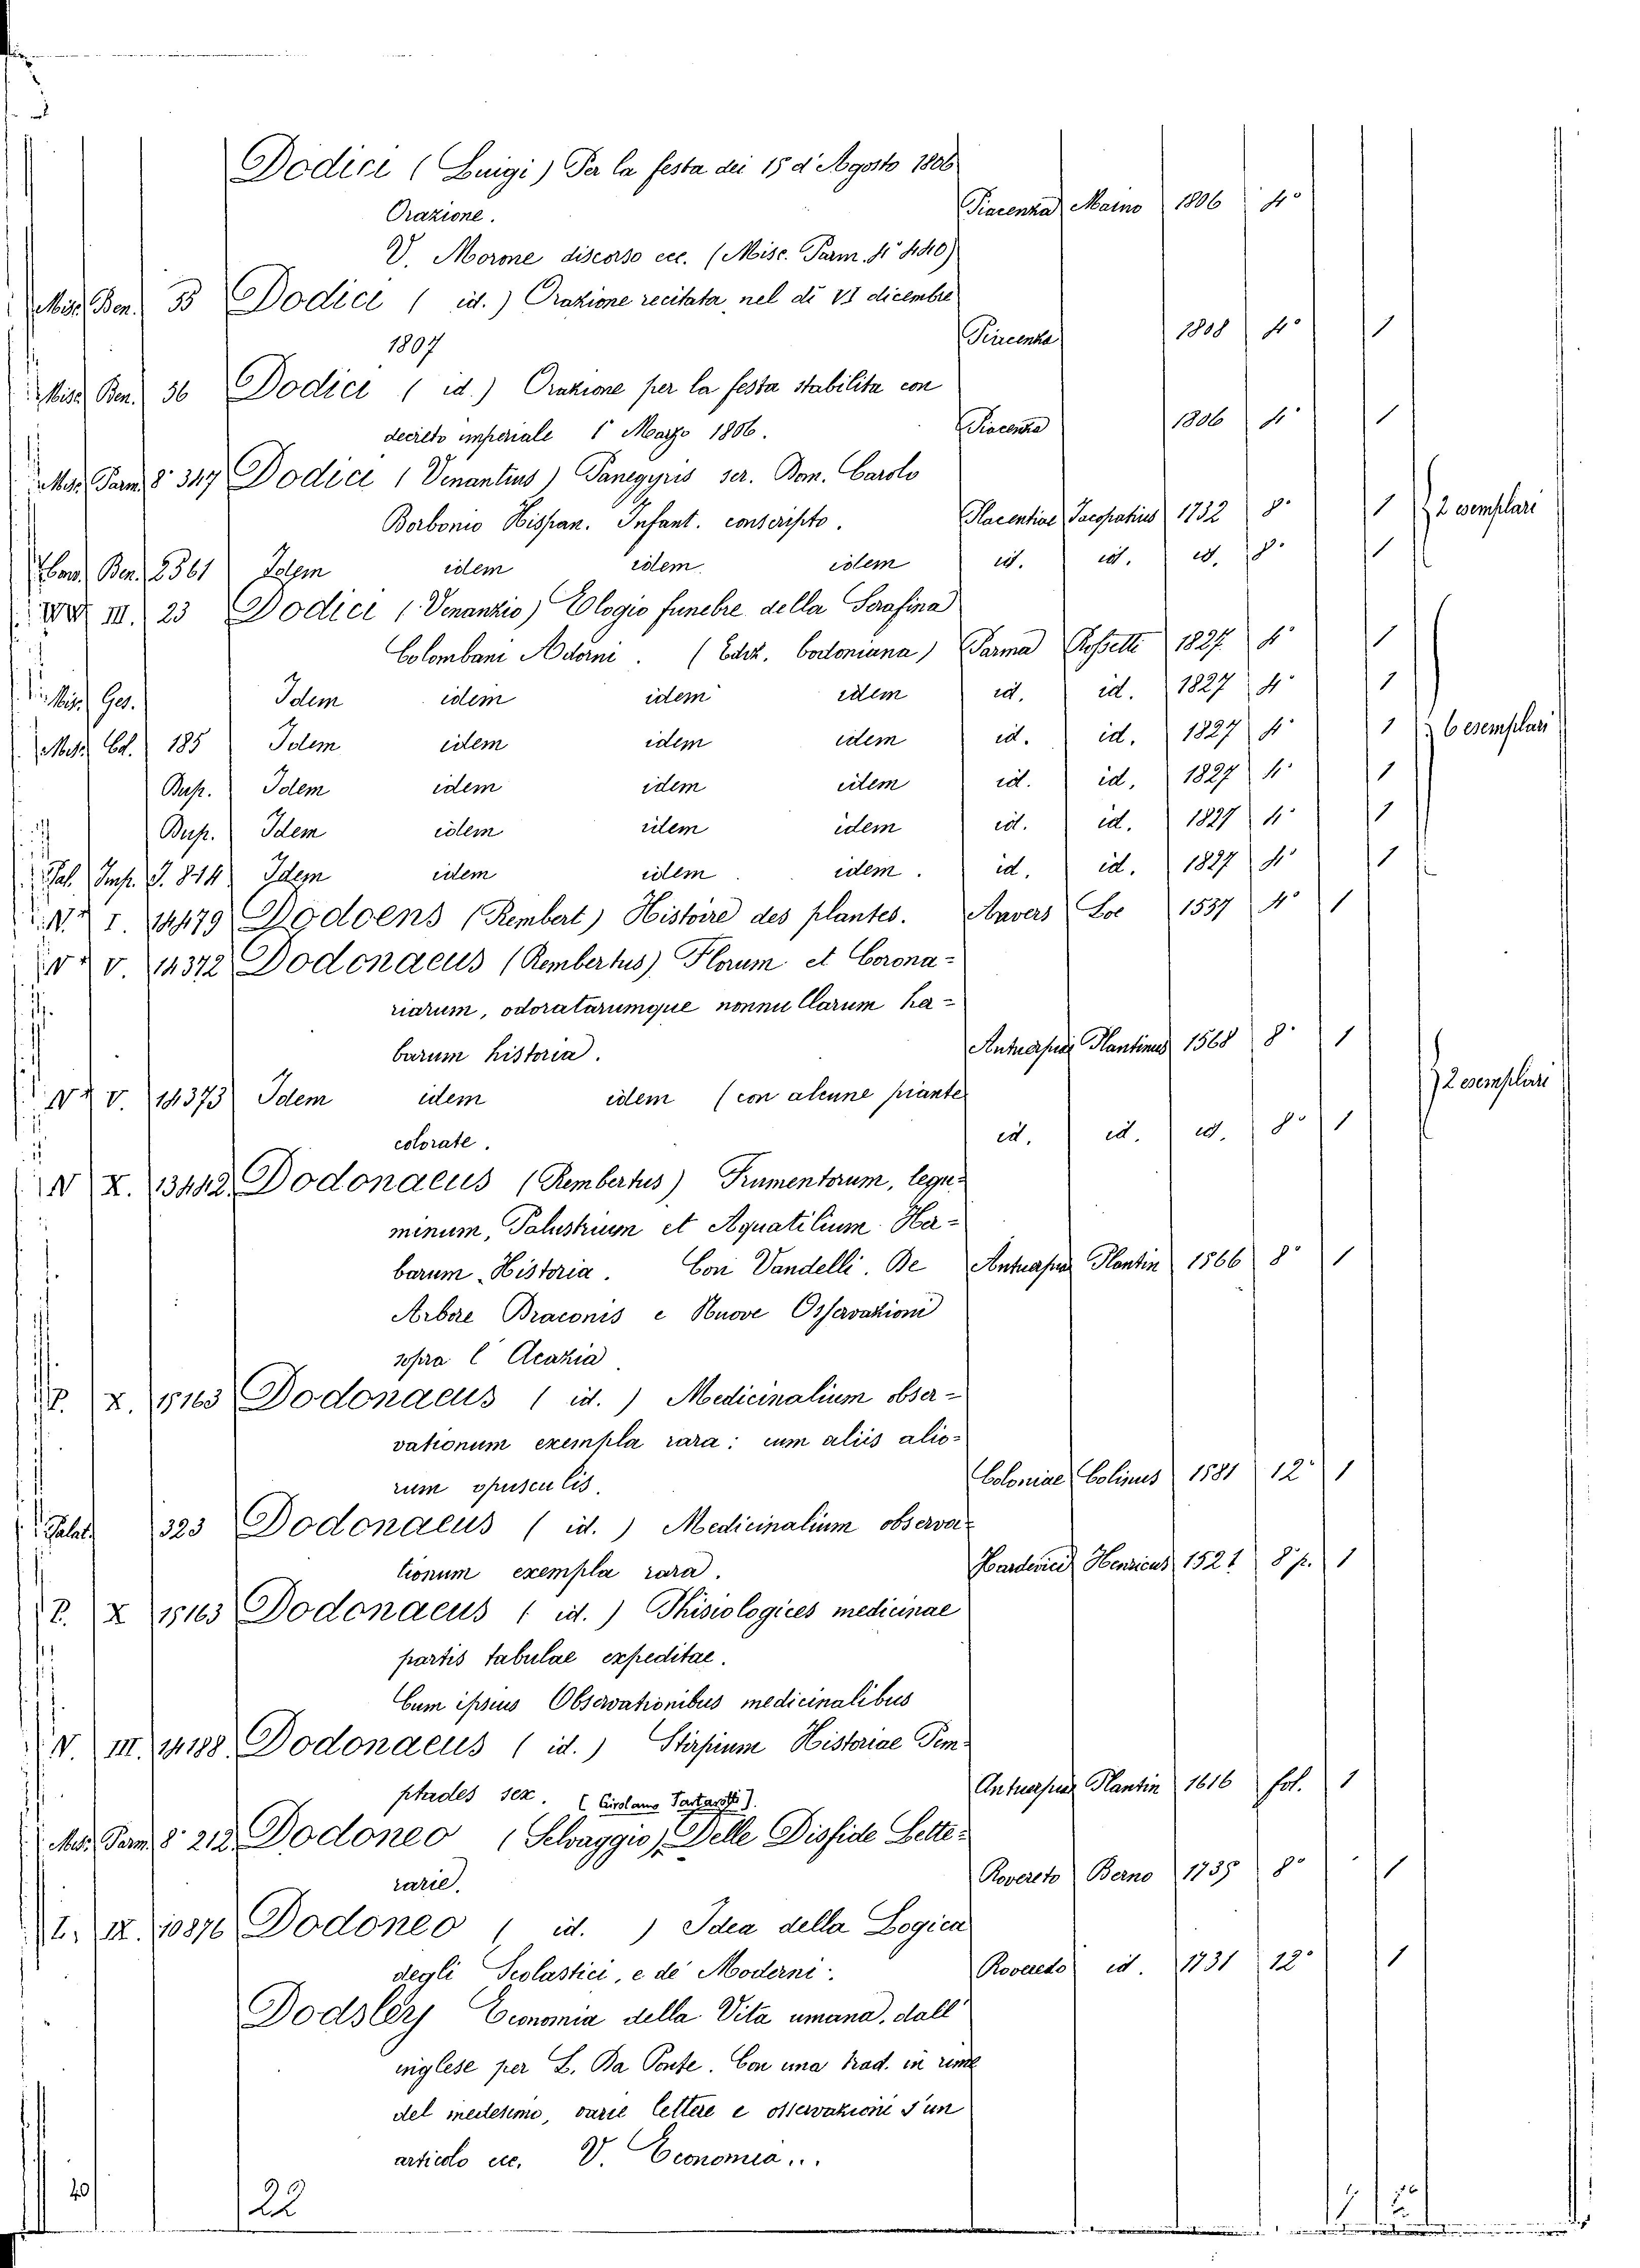 Dodici (Luigi) Per la festa dei 15 d'Agosto 1806
Orazione. Piacenza Maino 1806 4°
V. Morone discorso ecc. (Misc. Parm. 4° 440)
Misc. Ben. 35 Dodici ( id. ) Orazione recitata nel dì VI dicembre
1807 Piacenza 1808 4° 1
Misc. Ben. 36 Dodici ( id. ) Orazione per la festa stabilita con
decreto imperiale 1° Marzo 1806. Piacenza 1806 4° 1
Misc. Parm. 8° 347 Dodici (Venantius) Panegyris ser. Don. Carolo
Borbonio Hispan. Infant. conscripto. Placentiae Jacopatius 1732 8° 1 2 esemplari
Ben. 2361 Idem idem idem idem id. id. id. 8° 1
III. 23 Dodici (Venanzio) Elogio funebre della Serafina
Colombani Adorni. (Ediz. bodoniana) Parma Rossetti 1827 4° 1
Misc. Ges. Idem idem idem idem id. id. 1827 4° 1
Misc. Col. 185 Idem idem idem idem id. id. 1827 4° 1 6 esemplari
Dup. Idem idem idem idem id. id. 1827 4° 1
Dup. Idem idem idem idem id. id. 1827 4° 1
Pal. Imp. F. 844 Idem idem idem idem. id. id. 1827 4° 1
I. 14479 Dodoens (Rembert) Histoire des plantes. Anvers Loe 1537 4° 1
V. 14372 Dodonaeus (Rembertus) Florum et Corona-
riarum, odoratarumque nonnullarum ha-
barum historia. Antuerpiae Plantinus 1568 8° 1
V. 14373 Idem idem idem (con alcune piante 2 esemplari
colorate. id. id. id. 8° 1
N X. 13442 Dodonaeus (Rembertus) Frumentorum, legu-
minum, Palustrium et Aquatilium Her-
barum Historia. Con Vandelli. De Antuerpiae Plantin 1566 8° 1
Arbore Draconis e Nuove Osservazioni
sopra l'Acazia
P. X. 15163 Dodonaeus ( id. ) Medicinalium obser-
vationum exempla rara: cum aliis alio-
rum opusculis. Coloniae Colinus 1581 12° 1
Palat. 323 Dodonaeus ( id. ) Medicinalium observa-
tionum exempla rara. Hardervici Henricus 1521 8° p. 1
P. X 15163 Dodonaeus ( id. ) Phisiologices medicinae
partis tabulae expeditae.
Cum ipsius Observationibus medicinalibus
N. III. 14188 Dodonaeus ( id. ) Stirpium Historiae Pem-
ptades sex. Antuerpiae Plantin 1616 fol. 1
(Girolamo Tartarotti).
Misc. Parm. 8° 212 Dodoneo (Selvaggio) Delle Disfide Lette-
rarie. Rovereto Berno 1735 8° 1
L. IX. 10876 Dodoneo ( id. ) Idea della Logica
degli Scolastici, e de' Moderni. Roveredo id. 1731 12° 1
Dodsley Economia della Vita umana, dall'
inglese per L. Da Ponte. Con una trad. in rime
del medesimo, varie lettere e osservazioni d'un
articolo ecc. V. Economia...
20 22